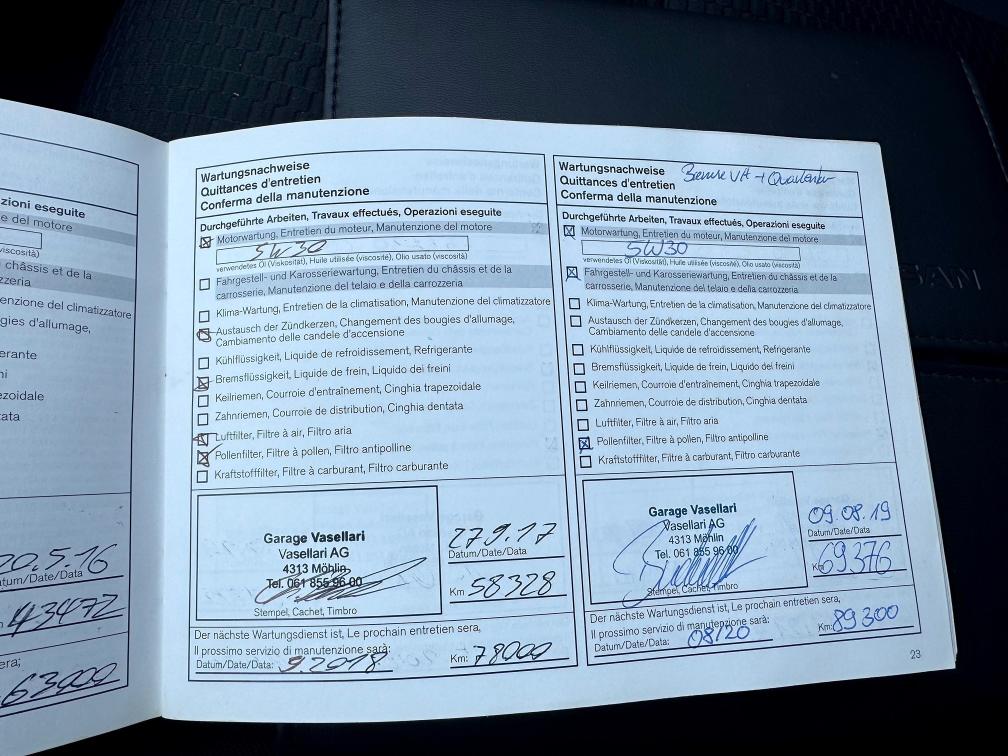 zioni eseguite
e del motore
viscosità)
châssis et de la
zzeria
enzione del climatizzatore
gies d'allumage,
erante
ni
pezoidale
tata
20.5.16
atum/Date/Data
43472
era;
63000
Wartungsnachweise
Quittances d'entretien
Conferma della manutenzione
Durchgeführte Arbeiten, Travaux effectués, Operazioni eseguite
Motorwartung, Entretien du moteur, Manutenzione del motore
5W30
verwendetes Öl (Viskosität), Huile utilisée (viscosité), Olio usato (viscosità)
Fahrgestell- und Karosseriewartung, Entretien du châssis et de la
carrosserie, Manutenzione del telaio e della carrozzeria
Klima-Wartung, Entretien de la climatisation, Manutenzione del climatizzatore
Austausch der Zündkerzen, Changement des bougies d'allumage,
Cambiamento delle candele d'accensione
Kühlflüssigkeit, Liquide de refroidissement, Refrigerante
Bremsflüssigkeit, Liquide de frein, Liquido dei freini
Keilriemen, Courroie d'entraînement, Cinghia trapezoidale
Zahnriemen, Courroie de distribution, Cinghia dentata
Luftfilter, Filtre à air, Filtro aria
Pollenfilter, Filtre à pollen, Filtro antipolline
Kraftstofffilter, Filtre à carburant, Filtro carburante
Garage Vasellari
Vasellari AG
4313 Möhlin
Tel. 061 855 96 00
Stempel, Cachet, Timbro
27.9.17
Datum/Date/Data
Km 58328
Der nächste Wartungsdienst ist, Le prochain entretien sera,
Il prossimo servizio di manutenzione sarà:
Datum/Date/Data: 9.2018 Km: 78000
Wartungsnachweise
Quittances d'entretien
Conferma della manutenzione
Durchgeführte Arbeiten, Travaux effectués, Operazioni eseguite
Motorwartung, Entretien du moteur, Manutenzione del motore
5W30
verwendetes Öl (Viskosität), Huile utilisée (viscosité), Olio usato (viscosità)
Fahrgestell- und Karosseriewartung, Entretien du châssis et de la
carrosserie, Manutenzione del telaio e della carrozzeria
Klima-Wartung, Entretien de la climatisation, Manutenzione del climatizzatore
Austausch der Zündkerzen, Changement des bougies d'allumage,
Cambiamento delle candele d'accensione
Kühlflüssigkeit, Liquide de refroidissement, Refrigerante
Bremsflüssigkeit, Liquide de frein, Liquido dei freini
Keilriemen, Courroie d'entraînement, Cinghia trapezoidale
Zahnriemen, Courroie de distribution, Cinghia dentata
Luftfilter, Filtre à air, Filtro aria
Pollenfilter, Filtre à pollen, Filtro antipolline
Kraftstofffilter, Filtre à carburant, Filtro carburante
Garage Vasellari
Vasellari AG
4313 Möhlin
Tel. 061 855 96 00
Stempel, Cachet, Timbro
09.08.19
Datum/Date/Data
Km 69376
Der nächste Wartungsdienst ist, Le prochain entretien sera,
Il prossimo servizio di manutenzione sarà:
Datum/Date/Data: 08/20 Km: 89300
23